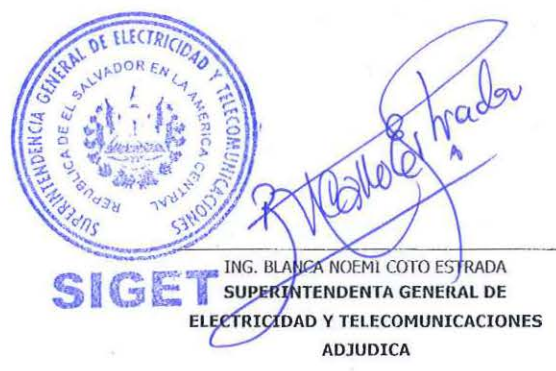 SUPERINTENDENCIA GENERAL DE ELECTRICIDAD Y TELECOMUNICACIONES
REPUBLICA DE EL SALVADOR EN LA AMERICA CENTRAL
SIGET
ING. BLANCA NOEMI COTO ESTRADA
SUPERINTENDENTA GENERAL DE
ELECTRICIDAD Y TELECOMUNICACIONES
ADJUDICA